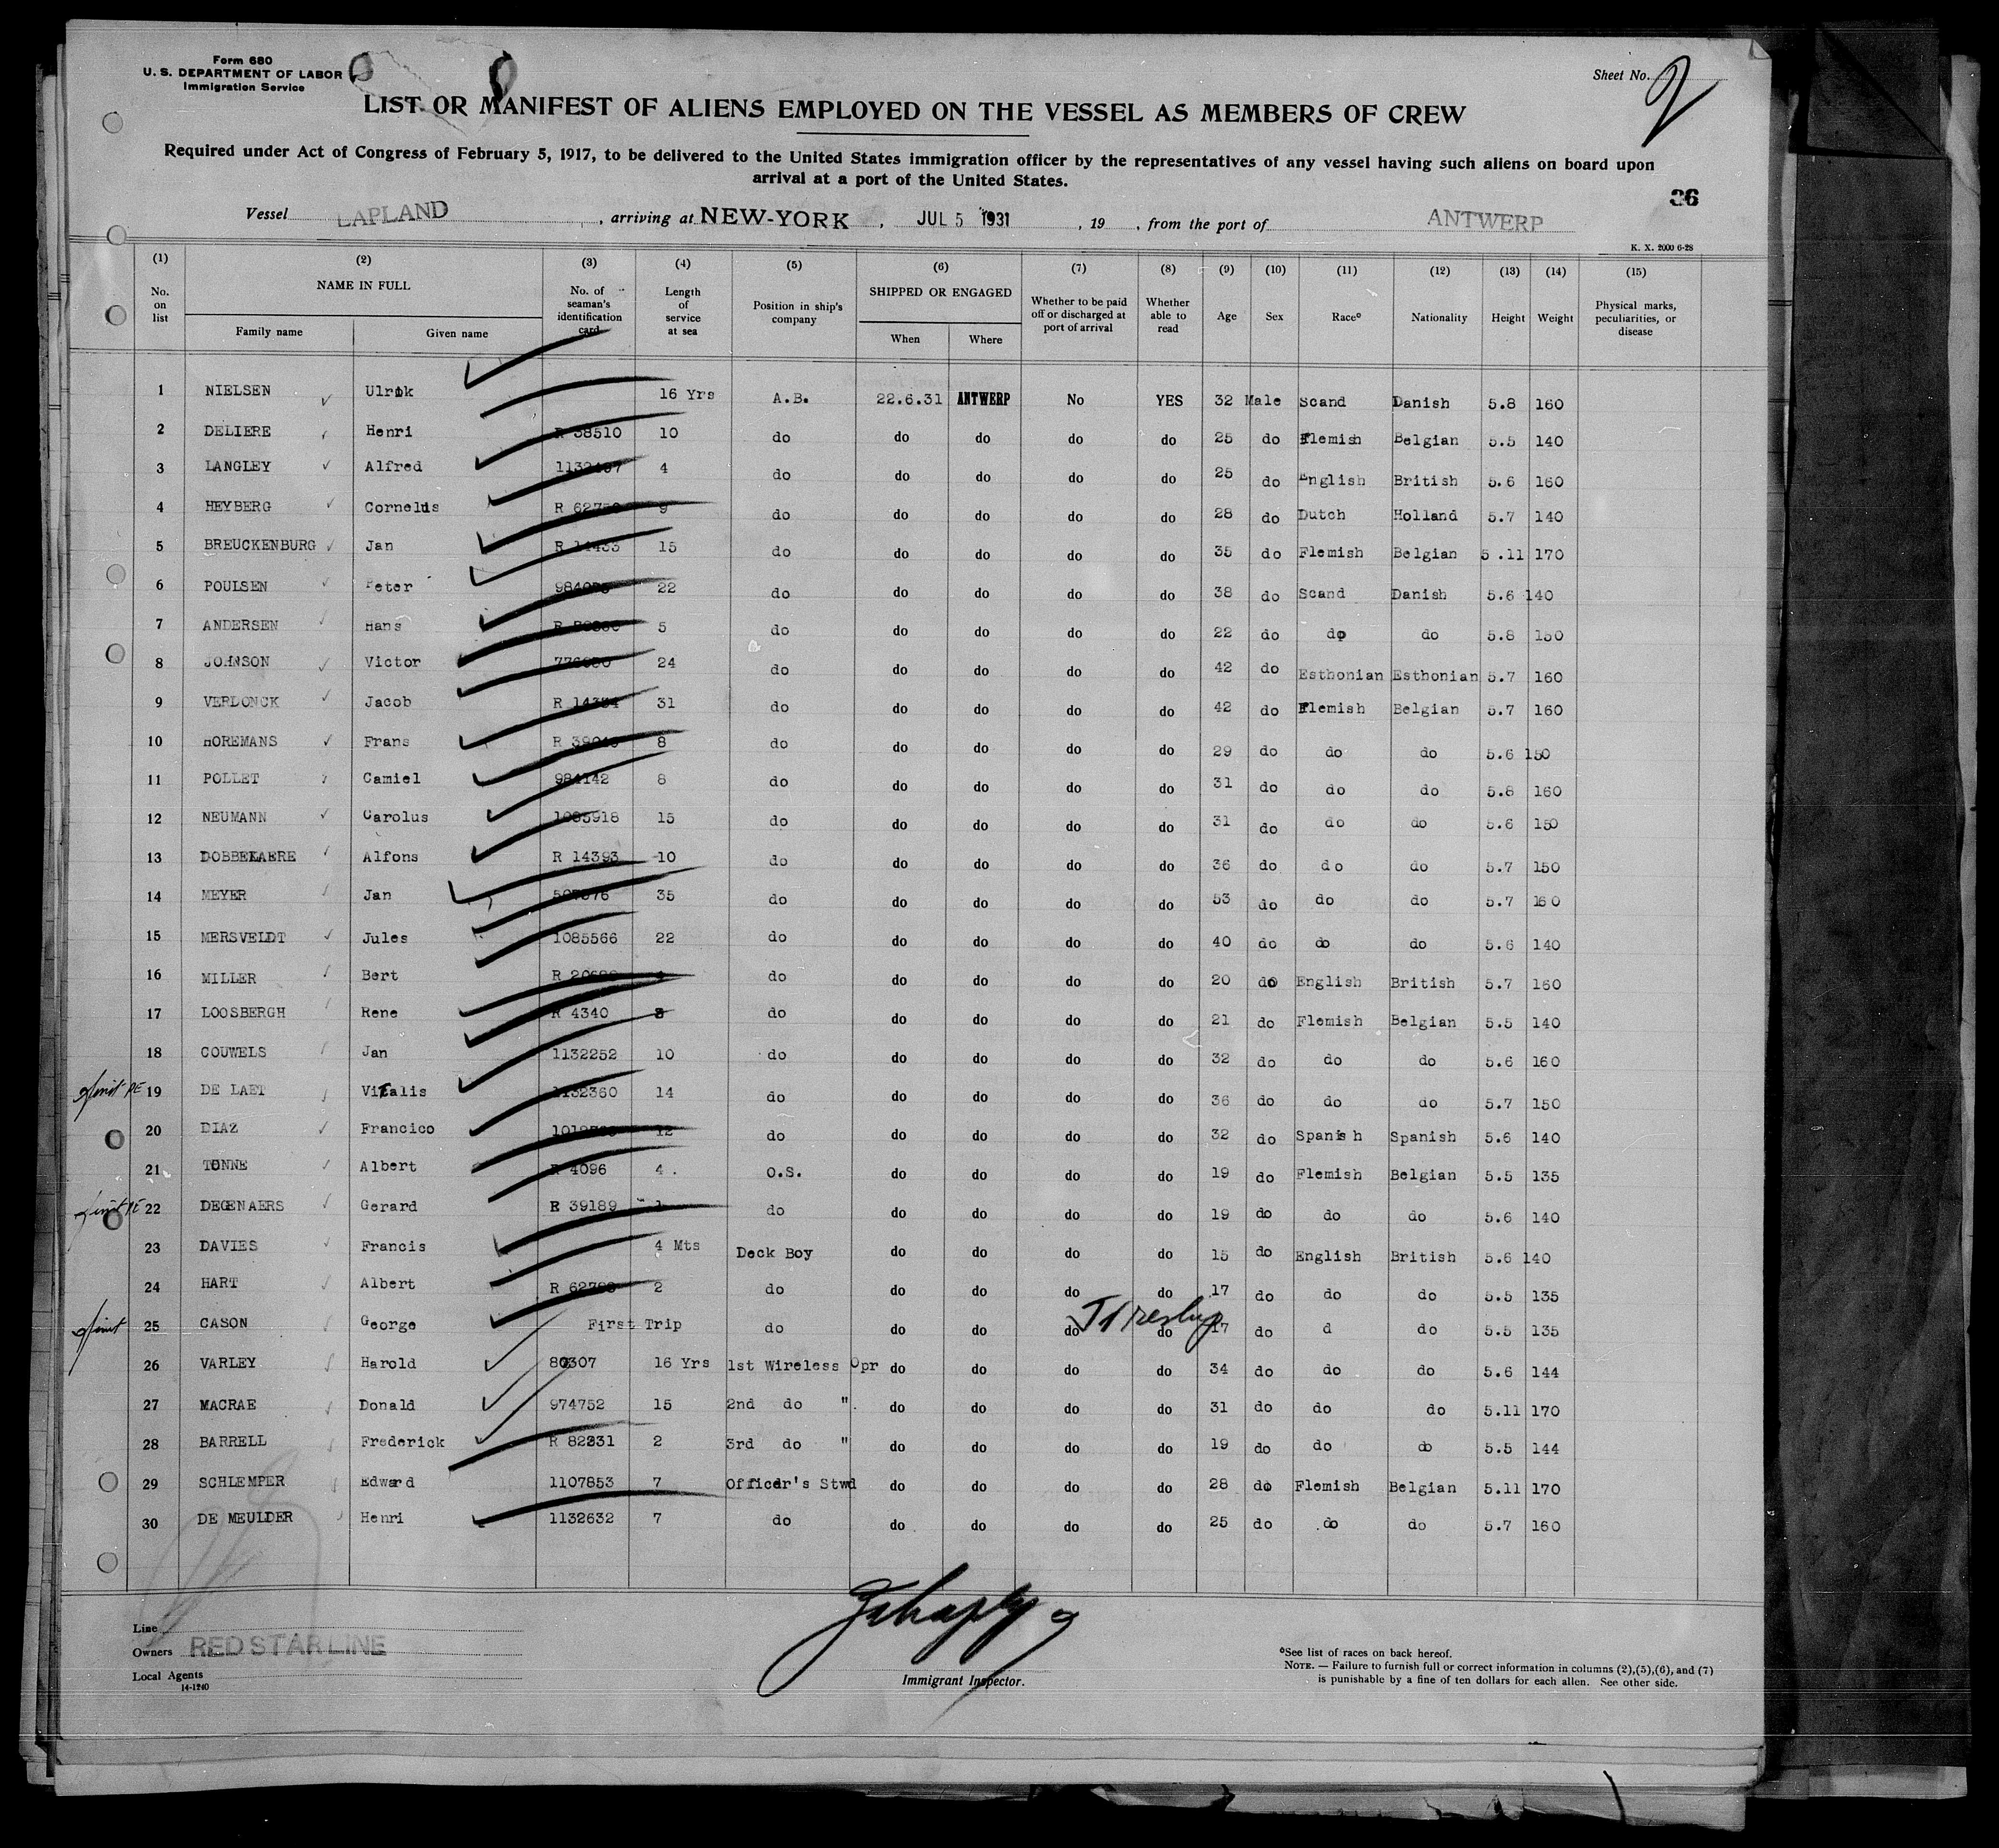 Form 680
U. S. DEPARTMENT OF LABOR
Immigration Service
Sheet No. 2
LIST OR MANIFEST OF ALIENS EMPLOYED ON THE VESSEL AS MEMBERS OF CREW
Required under Act of Congress of February 5, 1917, to be delivered to the United States immigration officer by the representatives of any vessel having such aliens on board upon
arrival at a port of the United States.
36
Vessel LAPLAND, arriving at NEW-YORK, JUL 5 1931, 19 , from the port of ANTWERP
K. X. 2000 6-28
(1) (2) (3) (4) (5) (6) (7) (8) (9) (10) (11) (12) (13) (14) (15)
No. on list NAME IN FULL Family name Given name No. of seaman's identification card Length of service at sea Position in ship's company SHIPPED OR ENGAGED When Where Whether to be paid off or discharged at port of arrival Whether able to read Age Sex Race Nationality Height Weight Physical marks, peculiarities, or disease
1 NIELSEN Ulrik 16 Yrs A.B. 22.6.31 ANTWERP No YES 32 Male Scand Danish 5.8 160
2 DELIERE Henri R 38510 10 do do do do do 25 do Flemish Belgian 5.5 140
3 LANGLEY Alfred 4 do do do do do 25 do English British 5.6 160
4 HEYBERG Cornelis 9 do do do do do 28 do Dutch Holland 5.7 140
5 BREUCKENBURG Jan R 14433 15 do do do do do 35 do Flemish Belgian 5.11 170
6 POULSEN Peter 22 do do do do do 38 do Scand Danish 5.6 140
7 ANDERSEN Hans 5 do do do do do 22 do do do 5.8 150
8 JOHNSON Victor 24 do do do do do 42 do Esthonian Esthonian 5.7 160
9 VERDONCK Jacob 31 do do do do do 42 do Flemish Belgian 5.7 160
10 HOREMANS Frans 8 do do do do do 29 do do do 5.6 150
11 POLLET Camiel 984142 8 do do do do do 31 do do do 5.8 160
12 NEUMANN Carolus 1085918 15 do do do do do 31 do do do 5.6 150
13 DOBBELAERE Alfons R 14393 10 do do do do do 36 do do do 5.7 150
14 MEYER Jan 35 do do do do do 53 do do do 5.7 160
15 MERSVELDT Jules 1085566 22 do do do do do 40 do do do 5.6 140
16 MILLER Bert do do do do do 20 do English British 5.7 160
17 LOOSBERGH Rene R 4340 3 do do do do do 21 do Flemish Belgian 5.5 140
18 COUWELS Jan 1132252 10 do do do do do 32 do do do 5.6 160
19 DE LAET Vitalis 1132360 14 do do do do do 36 do do do 5.7 150
20 DIAZ Francico 12 do do do do do 32 do Spanish Spanish 5.6 140
21 TONNE Albert R 4096 4 . O.S. do do do do 19 do Flemish Belgian 5.5 135
22 DEGENAERS Gerard R 39189 1 do do do do do 19 do do do 5.6 140
23 DAVIES Francis 4 Mts Deck Boy do do do do 15 do English British 5.6 140
24 HART Albert 2 do do do do do 17 do do do 5.5 135
25 CASON George First Trip do do do do do 17 do d do 5.5 135
26 VARLEY Harold 80307 16 Yrs 1st Wireless Opr do do do do 34 do do do 5.6 144
27 MACRAE Donald 974752 15 2nd do " do do do do 31 do do do 5.11 170
28 BARRELL Frederick R 82231 2 3rd do " do do do do 19 do do do 5.5 144
29 SCHLEMPER Edward 1107853 7 Officer's Stwd do do do do 28 do Flemish Belgian 5.11 170
30 DE MEULDER Henri 1132632 7 do do do do do 25 do do do 5.7 160
Line
Owners RED STAR LINE
Local Agents
14-1240
Immigrant Inspector.
See list of races on back hereof.
NOTE. — Failure to furnish full or correct information in columns (2),(5),(6), and (7)
is punishable by a fine of ten dollars for each alien. See other side.